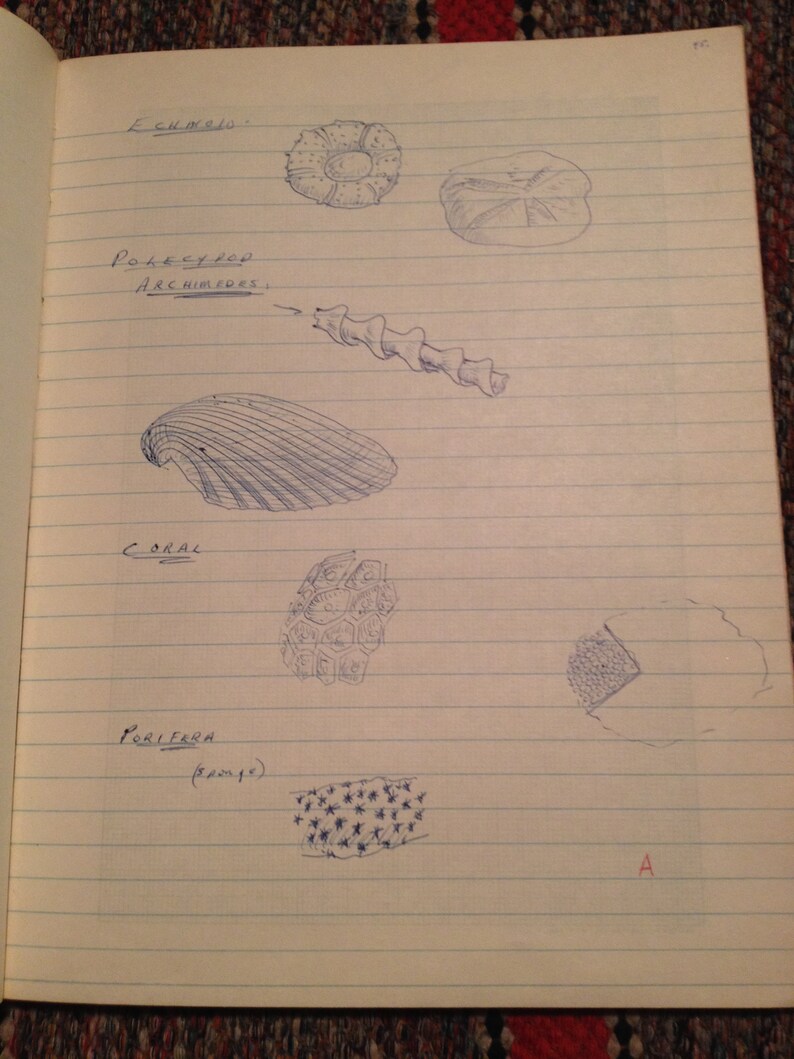 ECHINOID.
POLECYPOD
ARCHIMEDES.
CORAL
PORIFERA
(sponge)
A